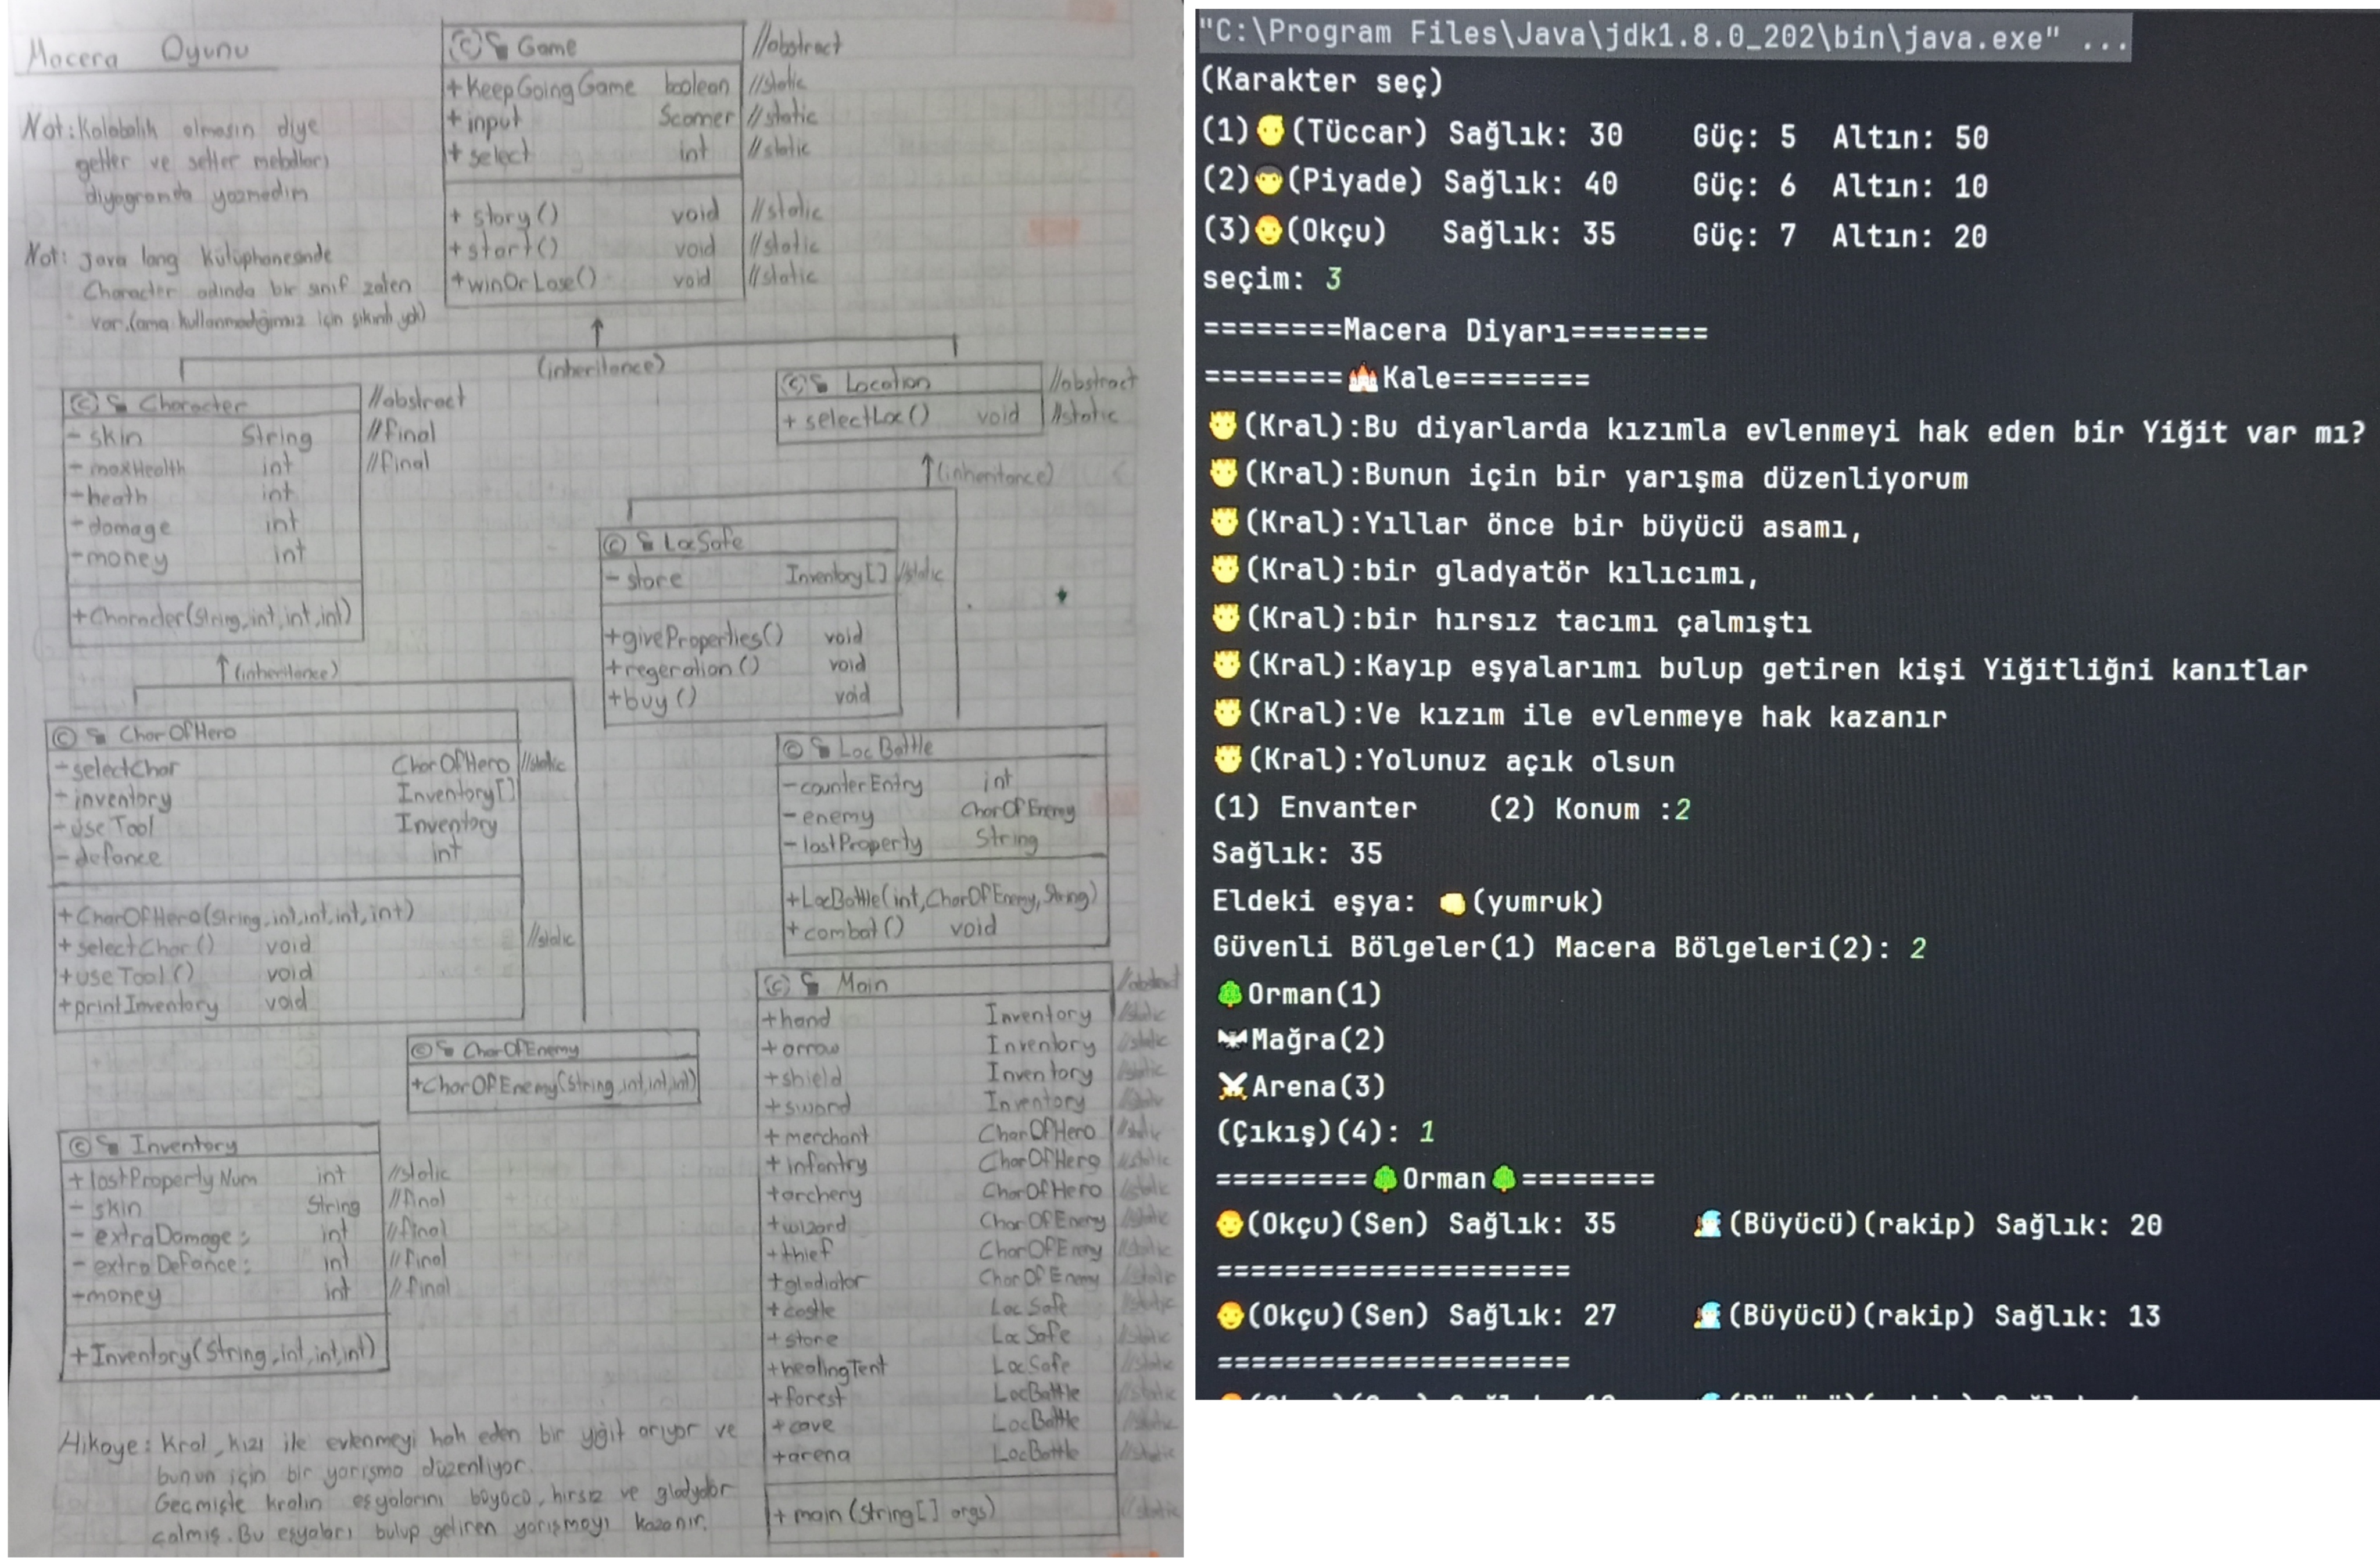 Macera Oyunu
Not: Kalabalık olmasın diye
getter ve setter metodları
diyagramda yazmadım
Not: java lang kütüphanesinde
Character adında bir sınıf zaten
var.(ama kullanmadığımız için sıkıntı yok)
Game //abstract
+KeepGoingGame boolean //static
+input Scanner //static
+select int //static
+story() void //static
+start() void //static
+winOrLose() void //static
(inheritance)
Character //abstract
-skin String //final
-maxHealth int //final
-heath int
-damage int
-money int
+Character(String,int,int,int)
Location //abstract
+selectLoc() void //static
(inheritance)
LocSafe
-store Inventory[] //static
+giveProperties() void
+regeration() void
+buy() void
(inheritance)
CharOfHero
-selectChar CharOfHero //static
-inventory Inventory[]
-useTool Inventory
-defance int
+CharOfHero(String,int,int,int,int)
+selectChar() void //static
+useTool() void
+printInventory void
LocBattle
-counterEntry int
-enemy CharOfEnemy
-lostProperty String
+LocBattle(int,CharOfEnemy,String)
+combat() void
CharOfEnemy
+CharOfEnemy(String,int,int,int)
Inventory
+lostPropertyNum int //static
-skin String //final
-extraDamage: int //final
-extraDefance: int //final
-money int //final
+Inventory(String,int,int,int)
Main //abstract
+hand Inventory //static
+arrow Inventory //static
+shield Inventory //static
+sword Inventory //static
+merchant CharOfHero //static
+infantry CharOfHero //static
+archery CharOfHero //static
+wizard CharOfEnemy //static
+thief CharOfEnemy //static
+gladiator CharOfEnemy //static
+castle LocSafe //static
+store LocSafe //static
+healingTent LocSafe //static
+forest LocBattle //static
+cave LocBattle //static
+arena LocBattle //static
+main(String[] args) //static
Hikaye: Kral, kızı ile evlenmeyi hak eden bir yiğit arıyor ve
bunun için bir yarışma düzenliyor.
Geçmişte kralın eşyalarını büyücü, hırsız ve gladyatör
çalmış. Bu eşyaları bulup getiren yarışmayı kazanır.
"C:\Program Files\Java\jdk1.8.0_202\bin\java.exe" ...
(Karakter seç)
(1)(Tüccar) Sağlık: 30 Güç: 5 Altın: 50
(2)(Piyade) Sağlık: 40 Güç: 6 Altın: 10
(3)(Okçu) Sağlık: 35 Güç: 7 Altın: 20
seçim: 3
========Macera Diyarı========
========Kale========
(Kral):Bu diyarlarda kızımla evlenmeyi hak eden bir Yiğit var mı?
(Kral):Bunun için bir yarışma düzenliyorum
(Kral):Yıllar önce bir büyücü asamı,
(Kral):bir gladyatör kılıcımı,
(Kral):bir hırsız tacımı çalmıştı
(Kral):Kayıp eşyalarımı bulup getiren kişi Yiğitliğni kanıtlar
(Kral):Ve kızım ile evlenmeye hak kazanır
(Kral):Yolunuz açık olsun
(1) Envanter (2) Konum :2
Sağlık: 35
Eldeki eşya: (yumruk)
Güvenli Bölgeler(1) Macera Bölgeleri(2): 2
Orman(1)
Mağra(2)
Arena(3)
(Çıkış)(4): 1
=========Orman========
(Okçu)(Sen) Sağlık: 35 (Büyücü)(rakip) Sağlık: 20
=====================
(Okçu)(Sen) Sağlık: 27 (Büyücü)(rakip) Sağlık: 13
=====================